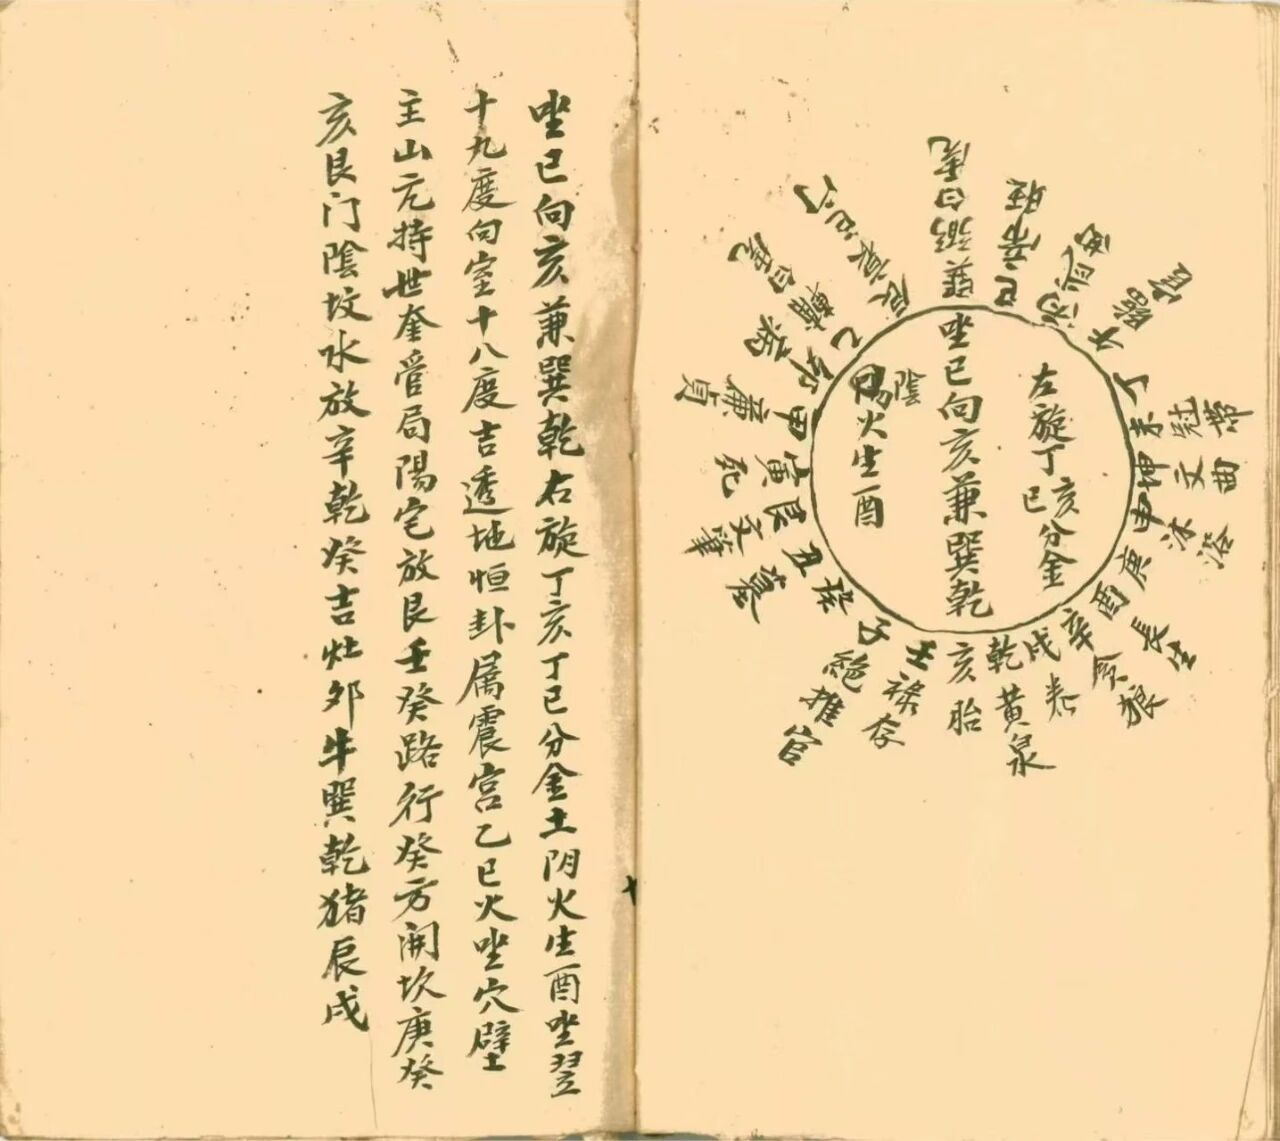 左旋丁亥
巳分金
坐巳向亥兼巽乾
陰
陽火生酉
巽弼白虎
巳帝旺
丙
午臨官
丁
未冠帶
坤文曲
申沐浴
庚
酉長生
辛貪狼
戌养
乾黃泉
亥胎
壬祿存
子絕推官
癸
丑墓
艮文筆
寅死
甲廉貞
卯病
乙輔
辰衰
坐巳向亥兼巽乾右旋丁亥丁巳分金土阴火生酉坐翌
十九度向室十八度吉透地恒卦属震宫乙巳火坐穴壁
主山亢持世奎管局陽宅放艮壬癸路行癸方開坎庚癸
亥艮门陰坟水放辛乾癸吉灶夘牛巽乾猪辰戌